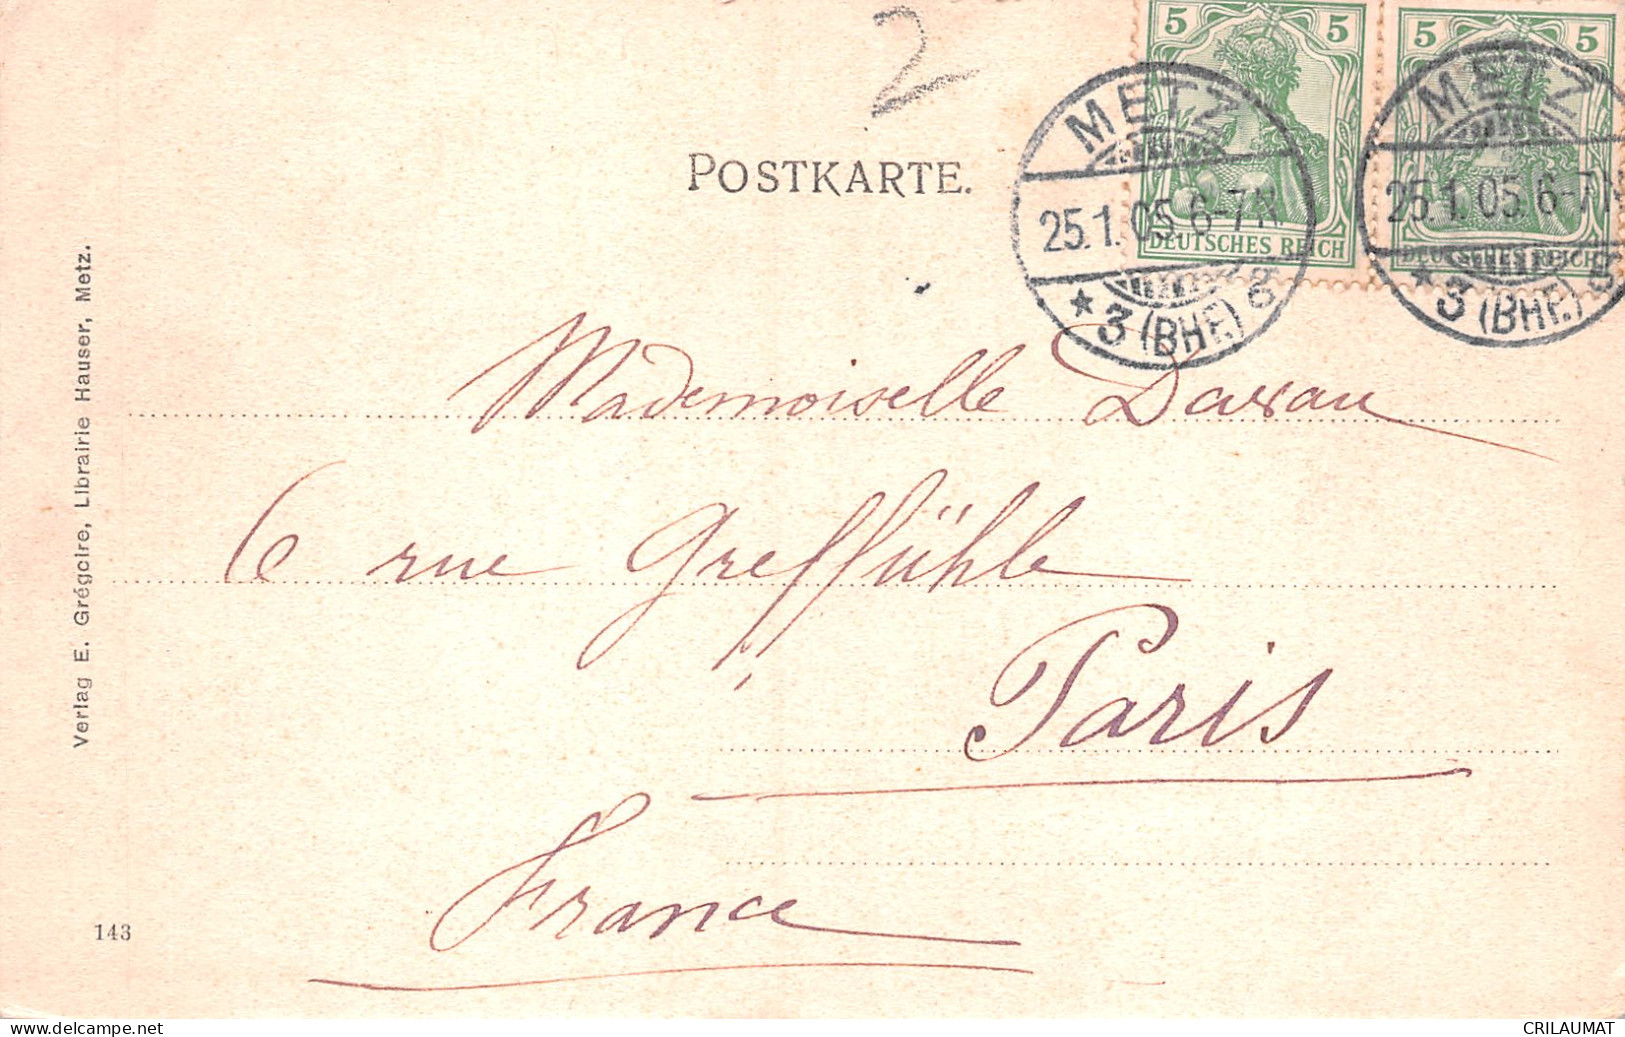 2
5 5
5 5
DEUTSCHES REICH
DEUTSCHES REICH
METZ
25.1.05.6-7N.
* 3 (BHF.) g
METZ
25.1.05.6-7N
* 3 (BHF.) g
POSTKARTE.
Mademoiselle
6 rue Greffühle
Paris
France
Verlag E. Grégoire, Librairie Hauser, Metz.
143
website:www.delcampe.net
CRILAUMAT